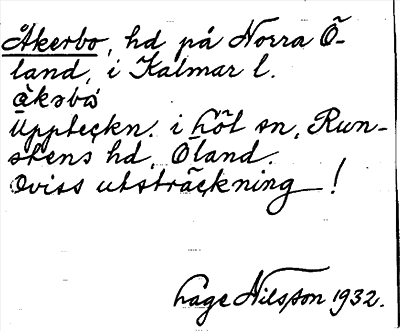 Åkerbo, hd på Norra Ö-
land, i Kalmar l.
åkəbo
Uppteckn. i Löt sn, Run-
stens hd, Öland.
Oviss utsträckning!
Lage Nilsson 1932.